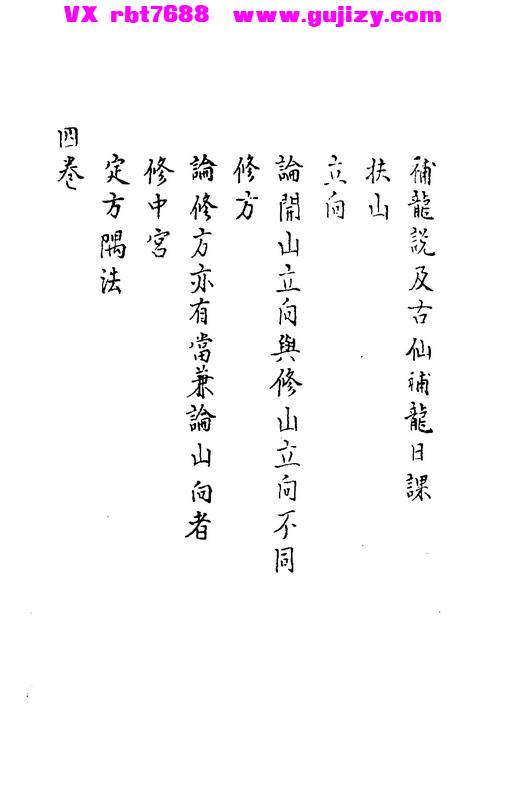 VX rbt7688 www.gujizy.com
補龍說及古仙補龍日課
扶山
立向
論開山立向與修山立向不同
修方
論修方亦有當兼論山向者
修中宮
定方隅法
四卷